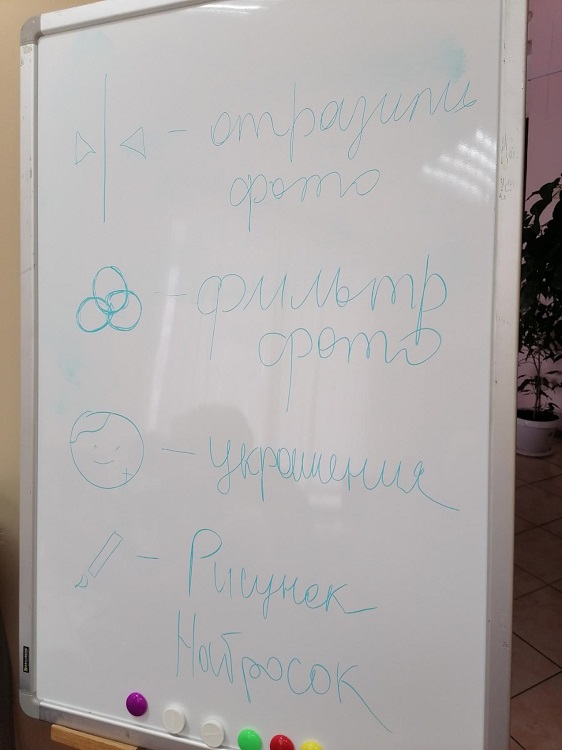 — отразить
фото
— фильтр
фото
— украшения
— Рисунек
Набросок